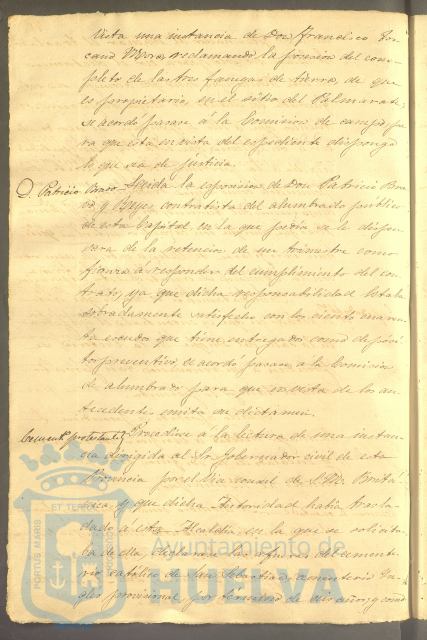 Vista una instancia de Don Francisco
cano Mora, reclamando la posesion del com-
pleto de las tres fanegas de tierra, de que
es propietario, en el sitio del Palmarete,
se acordó pasase á la Comision de campo, pa-
ra que esta en vista del expediente disponga
lo que sea de justicia.
D. Patricio Bravo Leida la esposicion de Don Patricio Bra-
vo y Reyes contratista del alumbrado publico
de esta Capital en la que pedia se le dispen-
sara de la retencion de un trimestre como
fianza á responder del cumplimiento del con-
trato, ya que dicha responsabilidad estaba
sobradamente satisfecha con los ciento
escudos que tiene entregados como depósi-
to preventivo se acordó pasase á la Comision
de alumbrado para que en vista de los an-
tecedentes emita su dictamen.
Cement.º protestante Procediose á la lectura de una instan-
cia dirigida al Sr. Gobernador civil de esta
Provincia por el Sr. Consul de S. M. Britá-
nica, y que dicha Autoridad habia trasla-
dado á esta Alcaldia, en la que se solicita-
ba de
rio católico de San Sebastian, cementerio In-
gles provisional, por término de diez años, y
ET TERRAE
PORTUS MARIS
CUSTODIA
Ayuntamiento de
HUELVA